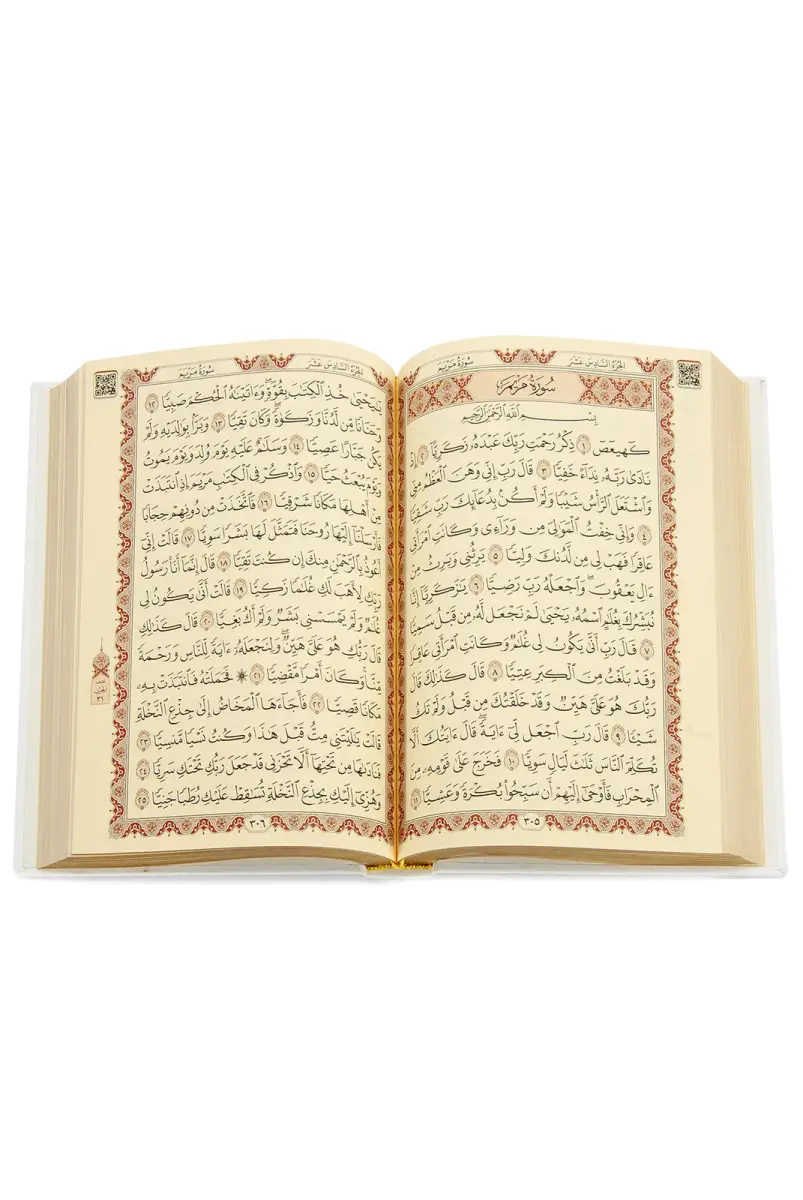 الجزء السادس عشر
سورة مريم
سُورَةُ مَرْيَمَ
بِسْمِ ٱللَّهِ ٱلرَّحْمَٰنِ ٱلرَّحِيمِ
كٓهيعٓصٓ ١ ذِكْرُ رَحْمَتِ رَبِّكَ عَبْدَهُۥ زَكَرِيَّآ ٢ إِذْ
نَادَىٰ رَبَّهُۥ نِدَآءً خَفِيًّا ٣ قَالَ رَبِّ إِنِّى وَهَنَ ٱلْعَظْمُ مِنِّى
وَٱشْتَعَلَ ٱلرَّأْسُ شَيْبًا وَلَمْ أَكُنۢ بِدُعَآئِكَ رَبِّ شَقِيًّا
٤ وَإِنِّى خِفْتُ ٱلْمَوَٰلِىَ مِن وَرَآءِى وَكَانَتِ ٱمْرَأَتِى
عَاقِرًا فَهَبْ لِى مِن لَّدُنكَ وَلِيًّا ٥ يَرِثُنِى وَيَرِثُ مِنْ
ءَالِ يَعْقُوبَ ۖ وَٱجْعَلْهُ رَبِّ رَضِيًّا ٦ يَٰزَكَرِيَّآ إِنَّا
نُبَشِّرُكَ بِغُلَٰمٍ ٱسْمُهُۥ يَحْيَىٰ لَمْ نَجْعَل لَّهُۥ مِن قَبْلُ سَمِيًّا
٧ قَالَ رَبِّ أَنَّىٰ يَكُونُ لِى غُلَٰمٌ وَكَانَتِ ٱمْرَأَتِى عَاقِرًا
وَقَدْ بَلَغْتُ مِنَ ٱلْكِبَرِ عِتِيًّا ٨ قَالَ كَذَٰلِكَ قَالَ
رَبُّكَ هُوَ عَلَىَّ هَيِّنٌ وَقَدْ خَلَقْتُكَ مِن قَبْلُ وَلَمْ تَكُ
شَيْـًٔا ٩ قَالَ رَبِّ ٱجْعَل لِّىٓ ءَايَةً ۚ قَالَ ءَايَتُكَ أَلَّا
تُكَلِّمَ ٱلنَّاسَ ثَلَٰثَ لَيَالٍ سَوِيًّا ١٠ فَخَرَجَ عَلَىٰ قَوْمِهِۦ مِنَ
ٱلْمِحْرَابِ فَأَوْحَىٰٓ إِلَيْهِمْ أَن سَبِّحُوا۟ بُكْرَةً وَعَشِيًّا ١١
٣٠٥
الجزء السادس عشر
سورة مريم
يَٰيَحْيَىٰ خُذِ ٱلْكِتَٰبَ بِقُوَّةٍ ۖ وَءَاتَيْنَٰهُ ٱلْحُكْمَ صَبِيًّا ١٢
وَحَنَانًا مِّن لَّدُنَّا وَزَكَوٰةً ۖ وَكَانَ تَقِيًّا ١٣ وَبَرًّۢا بِوَٰلِدَيْهِ وَلَمْ
يَكُن جَبَّارًا عَصِيًّا ١٤ وَسَلَٰمٌ عَلَيْهِ يَوْمَ وُلِدَ وَيَوْمَ يَمُوتُ
وَيَوْمَ يُبْعَثُ حَيًّا ١٥ وَٱذْكُرْ فِى ٱلْكِتَٰبِ مَرْيَمَ إِذِ ٱنتَبَذَتْ
مِنْ أَهْلِهَا مَكَانًا شَرْقِيًّا ١٦ فَٱتَّخَذَتْ مِن دُونِهِمْ حِجَابًا
فَأَرْسَلْنَآ إِلَيْهَا رُوحَنَا فَتَمَثَّلَ لَهَا بَشَرًا سَوِيًّا ١٧ قَالَتْ إِنِّىٓ
أَعُوذُ بِٱلرَّحْمَٰنِ مِنكَ إِن كُنتَ تَقِيًّا ١٨ قَالَ إِنَّمَآ أَنَا۠ رَسُولُ
رَبِّكِ لِأَهَبَ لَكِ غُلَٰمًا زَكِيًّا ١٩ قَالَتْ أَنَّىٰ يَكُونُ لِى
غُلَٰمٌ وَلَمْ يَمْسَسْنِى بَشَرٌ وَلَمْ أَكُ بَغِيًّا ٢٠ قَالَ كَذَٰلِكِ
قَالَ رَبُّكِ هُوَ عَلَىَّ هَيِّنٌ ۖ وَلِنَجْعَلَهُۥٓ ءَايَةً لِّلنَّاسِ وَرَحْمَةً
مِّنَّا ۚ وَكَانَ أَمْرًا مَّقْضِيًّا ٢١ ۞ فَحَمَلَتْهُ فَٱنتَبَذَتْ بِهِۦ
مَكَانًا قَصِيًّا ٢٢ فَأَجَآءَهَا ٱلْمَخَاضُ إِلَىٰ جِذْعِ ٱلنَّخْلَةِ
قَالَتْ يَٰلَيْتَنِى مِتُّ قَبْلَ هَٰذَا وَكُنتُ نَسْيًا مَّنسِيًّا ٢٣
فَنَادَىٰهَا مِن تَحْتِهَآ أَلَّا تَحْزَنِى قَدْ جَعَلَ رَبُّكِ تَحْتَكِ سَرِيًّا ٢٤
وَهُزِّىٓ إِلَيْكِ بِجِذْعِ ٱلنَّخْلَةِ تُسَٰقِطْ عَلَيْكِ رُطَبًا جَنِيًّا ٢٥
٣٠٦
الحزب
٣١